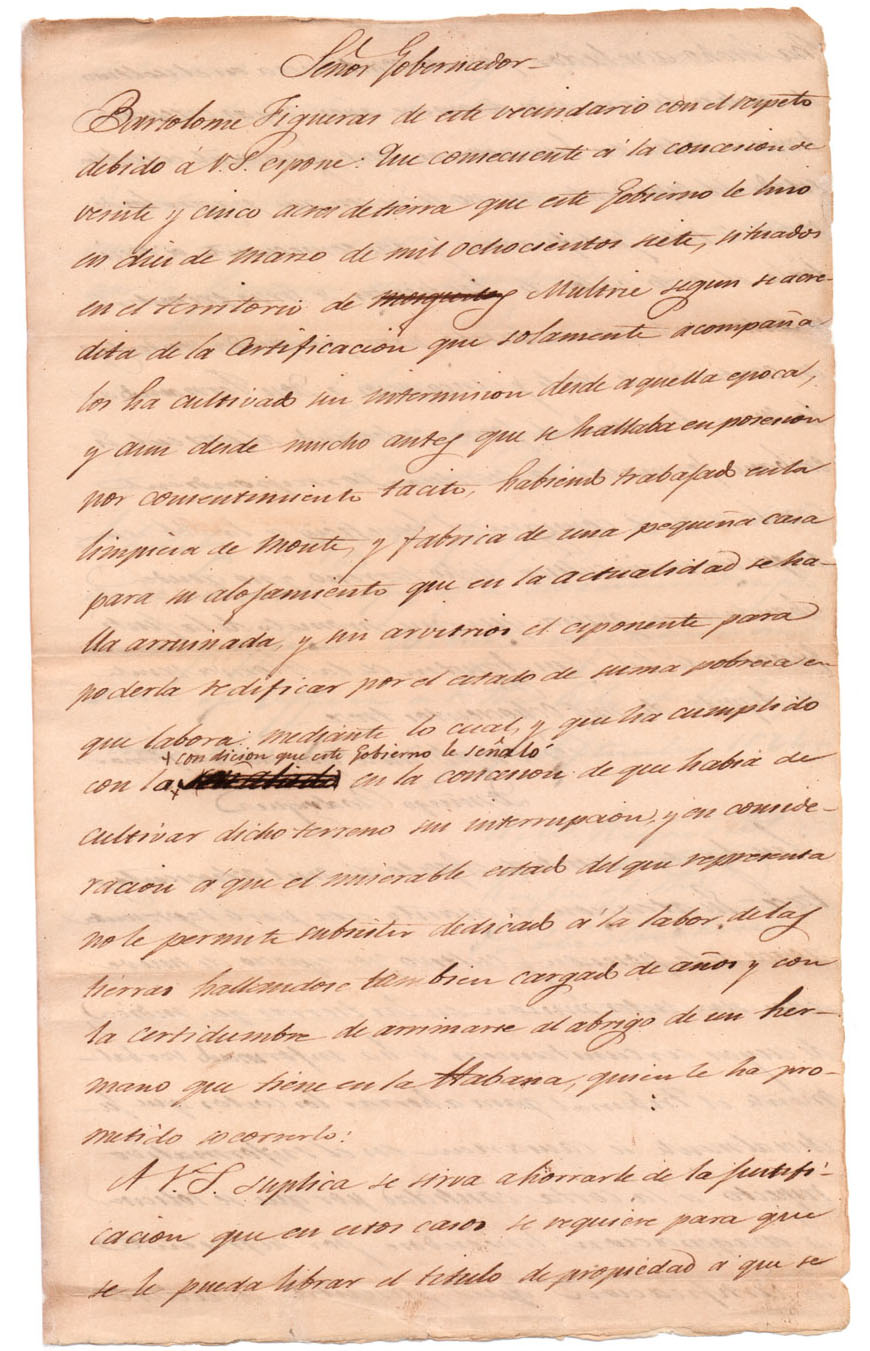 Señor Gobernador
Bartolome Figueras de este vecindario con el respeto
debido á V.S. espone: Que consecuente á la concesion de
veinte y cinco acres de tierra que este Gobierno le hizo
en diez de Marzo de mil ochocientos siete, situados
en el territorio de Multrie segun se acre-
dita de la Certificacion que solamente acompaña
los ha cultivado sin intermision desde aquella epoca,
y aun desde mucho antes que se hallaba en posesion
por consentimiento tacito, habiendo trabajado en la
limpieza de Monte, y fabrica de una pequeña casa
para su alojamiento que en la actualidad se ha-
lla arruinada, y sin arvitrios el esponente para
poderla redificar por el estado de suma pobreza en
que labora: mediante lo cual, y que ha cumplido
condicion que este Gobierno le señaló
con la en la concesion de que habia de
cultivar dicho terreno sin interrupcion, y en conside-
racion a que el miserable estado del que representa
no le permite subsistir dedicado á la labor de las
tierras hallandose tambien cargado de años y con
la certidumbre de arrimarse al abrigo de un her-
mano que tiene en la Habana, quien le ha pro-
metido socorrerlo:
A V.S. suplica se sirva ahorrarle de la justifi-
cacion que en estos casos se requiere para que
se le pueda librar el titulo de propiedad a que se